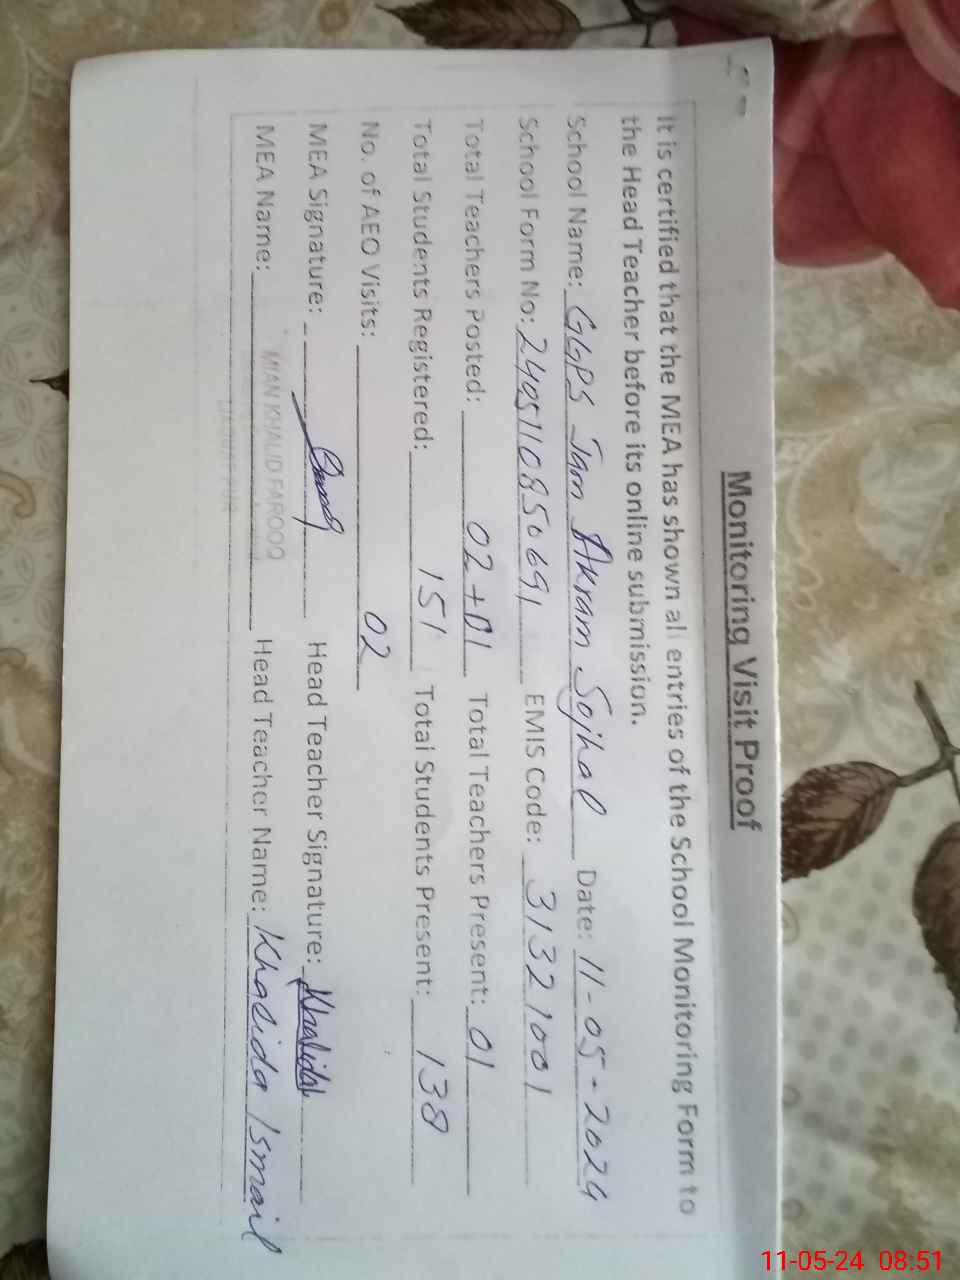 Monitoring Visit Proof
It is certified that the MEA has shown all entries of the School Monitoring Form to
the Head Teacher before its online submission.
School Name: GGPS Jam Akram Sojhal Date: 11-05-2024
School Form No: 2405110850691 EMIS Code: 31321001
Total Teachers Posted: 02+01 Total Teachers Present: 01
Total Students Registered: 151 Total Students Present: 138
No. of AEO Visits: 02
MEA Signature: Head Teacher Signature: Khalida
MEA Name: MIAN KHALID FAROOQ Head Teacher Name: Khalida Ismail
11-05-24 08:51